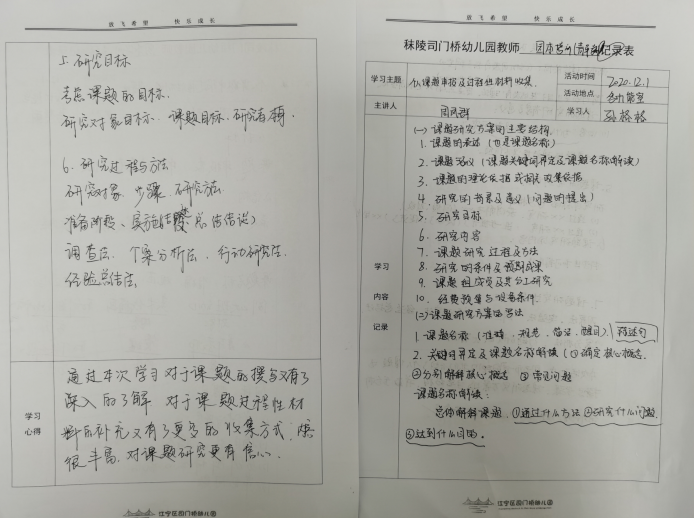 放飞希望 快乐成长
5.研究目标
考虑课题的目标.
研究对象目标、课题目标、研究者
6.研究过程与方法
研究对象 步骤 研究方法
准备阶段、实施阶段 总结
调查法、个案分析法、行动研究法、
经验总结法.
学习
心得
通过本次学习对于课题的撰写又有了
深入的了解 对于课题过程性材
料的补充又有了更多的收集方式,
很丰富,对课题研究更有信心.
江宁区司门桥幼儿园
放飞希望 快乐成长
秣陵司门桥幼儿园教师 记录表
学习主题
课题申报及过程性材料收集.
活动时间
2020.12.1
活动地点
多功能室
主讲人
学习人
孙
学习
内容
记录
(一)课题研究方案的主要结构
1.课题的表述(也是课题名称)
2.课题涵义(课题关键词界定及课题名称解读)
3.课题的理论依据或政策依据
4.研究的背景及意义(问题的提出)
5.研究目标
6.研究内容
7.课题研究过程及方法
8.研究的条件及预期成果
9.课题组成员及其分工研究
10.经费预算与设备条件.
(二)课题研究方案的写法
1.课题名称(准确、规范、简洁、醒目).陈述句
2.关键词界定及课题名称解读(①确定核心概念.
②分别解释核心概念 ③常见问题
课题名称解读:
总体解释课题,①通过什么方法②研究什么问题
③达到什么目的。
江宁区司门桥幼儿园